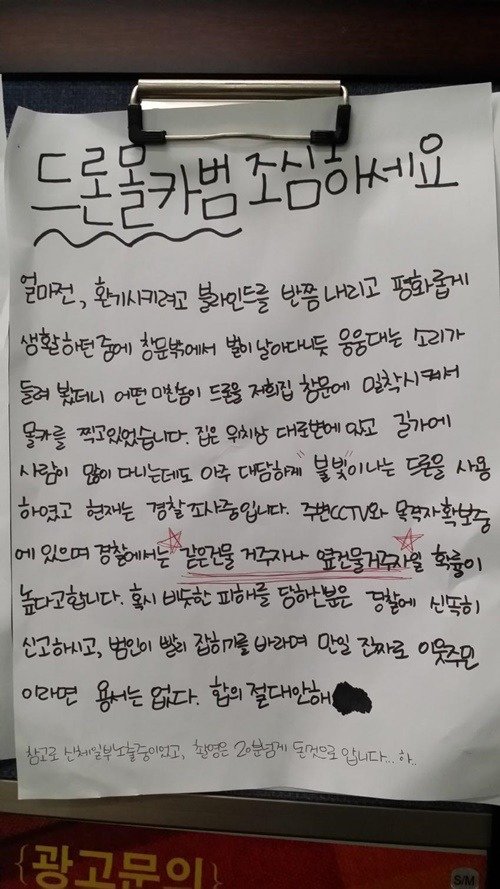 드론몰카범 조심하세요
얼마전, 환기시키려고 블라인드를 반쯤 내리고 평화롭게
생활하던 중에 창문밖에서 벌이 날아다니듯 웅웅대는 소리가
들려 봤더니 어떤 미친놈이 드론을 저희집 창문에 밀착시켜서
몰카를 찍고있었습니다. 집은 위치상 대로변에 있고 길가에
사람이 많이 다니는데도 아주 대담하게 "불빛"이 나는 드론을 사용
하였고 현재는 경찰조사중입니다. 주변CCTV와 목격자확보중
에 있으며 경찰에서는 ☆같은건물 거주자나 옆건물거주자☆일 확률이
높다고합니다. 혹시 비슷한 피해를 당하신분은 경찰에 신속히
신고하시고, 범인이 빨리 잡히기를 바라며 만일 진짜로 이웃주민
이라면 용서는 없다. 합의 절대안해
참고로 신체일부노출중이었고, 촬영은 20분넘게 된것으로 압니다... 하..
{광고문의}
S/M